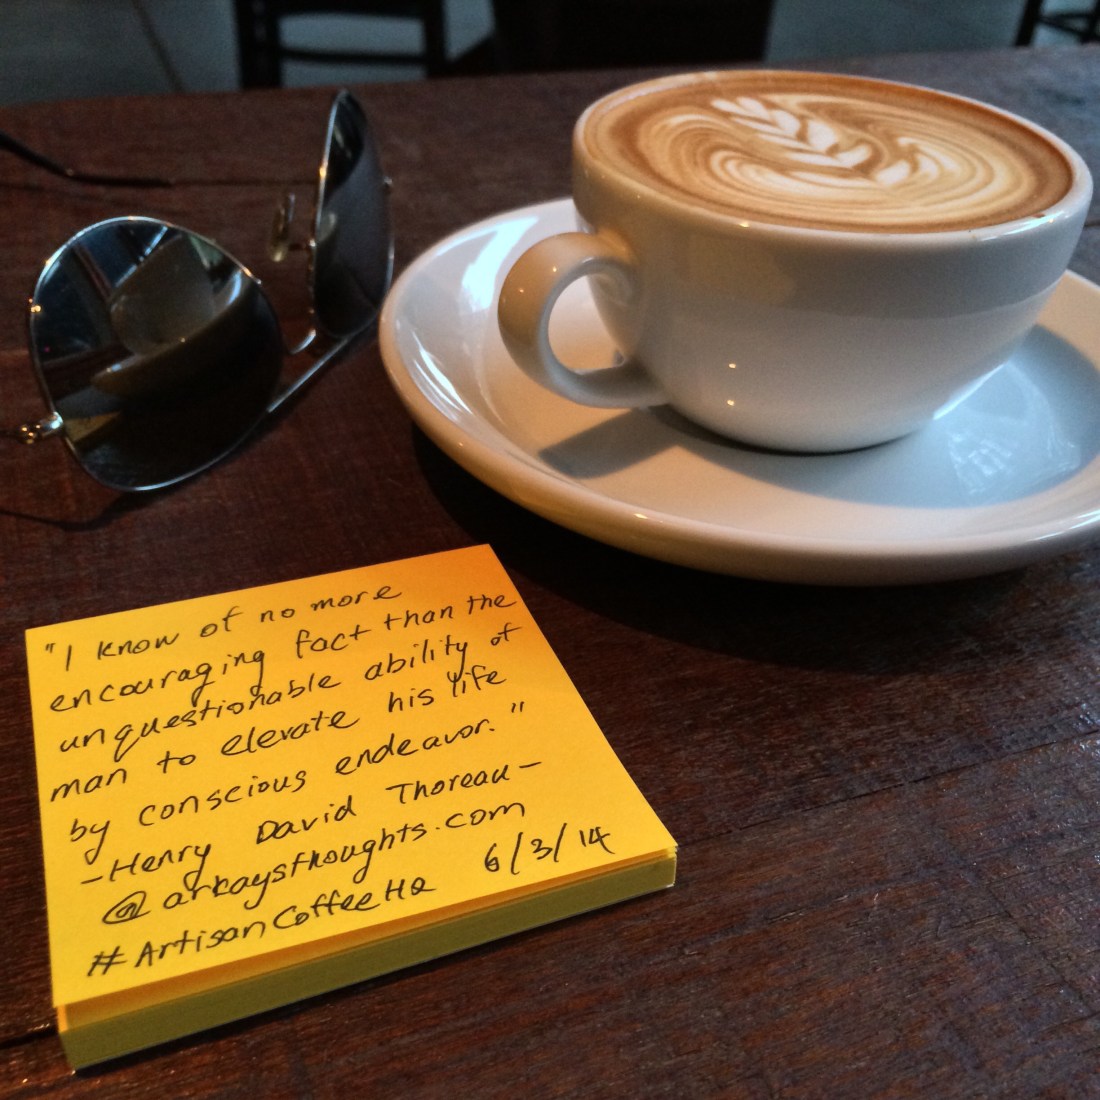 "I know of no more
encouraging fact than the
unquestionable ability of
man to elevate his life
by conscious endeavor."
-Henry David Thoreau-
@arkaysthoughts.com
#ArtisanCoffeeHQ 6/3/14